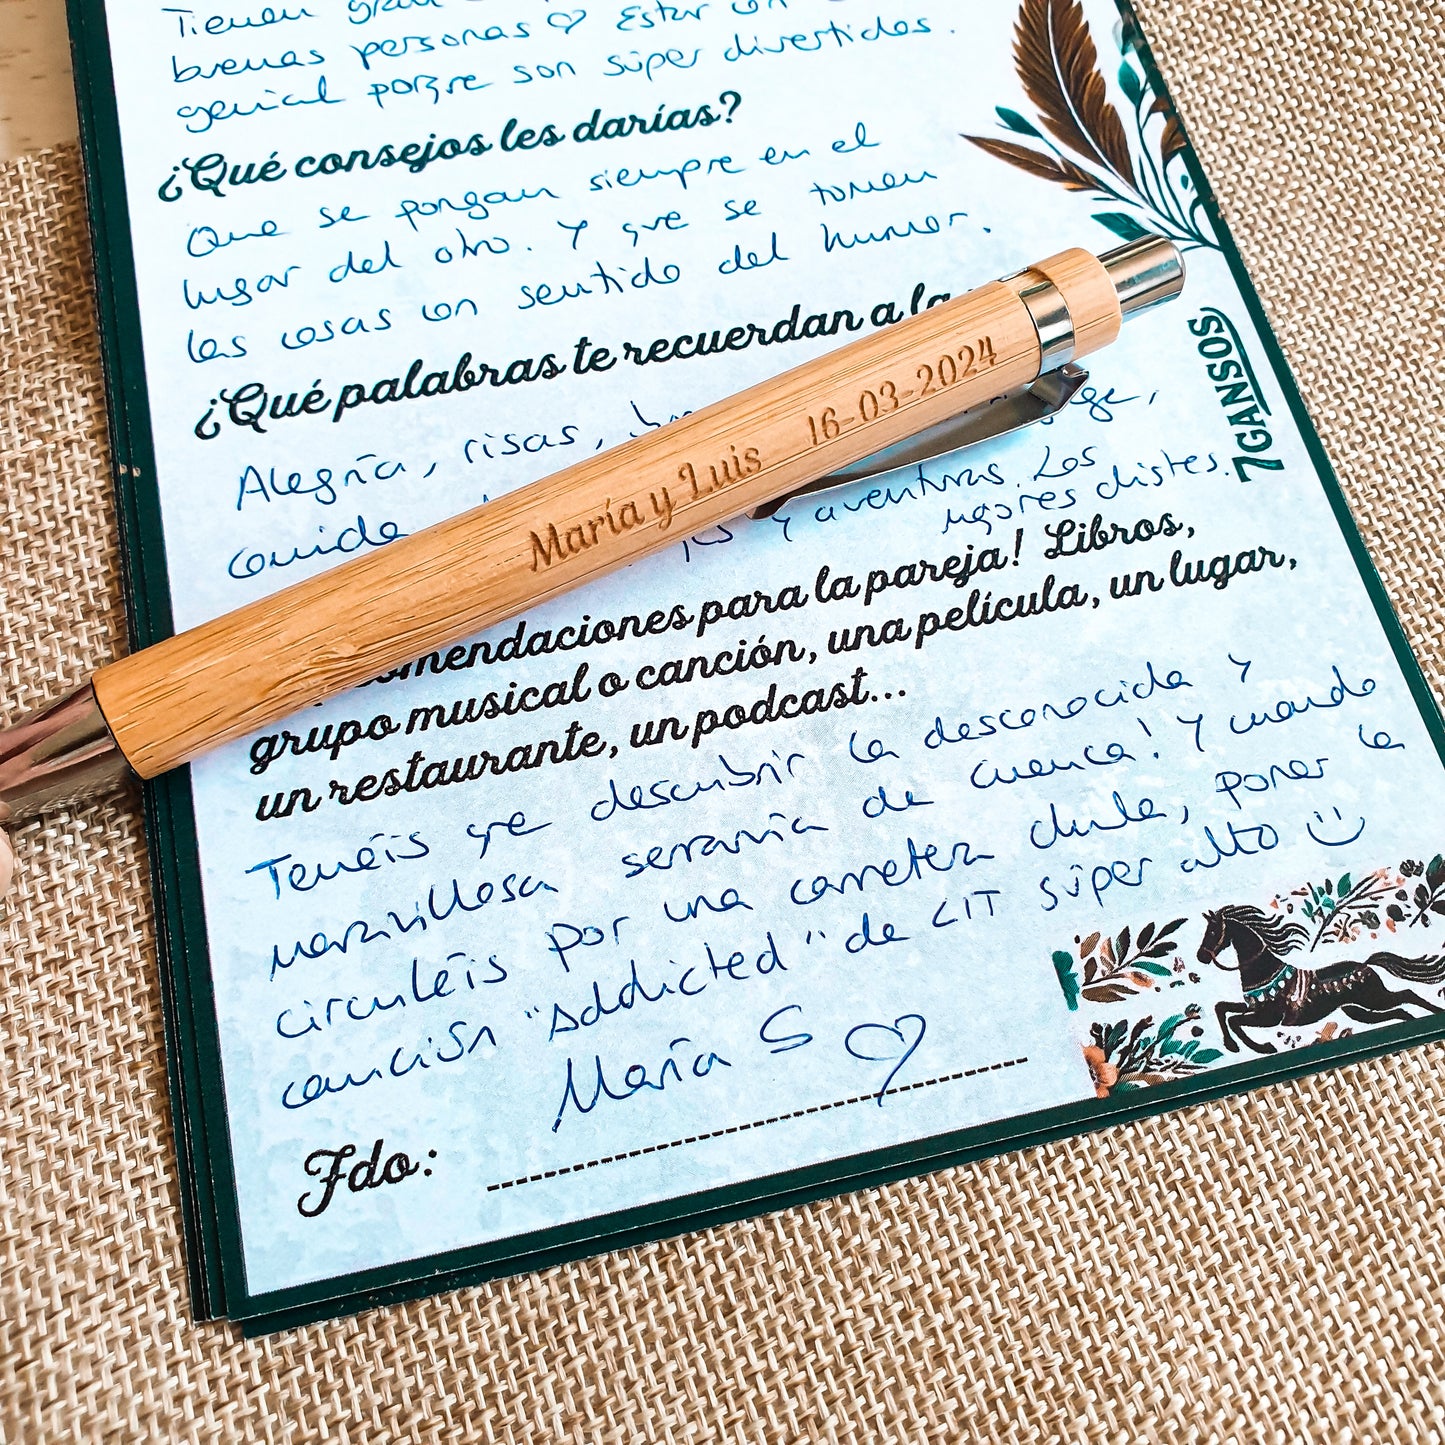 Tienen gran
buenas personas ♡ Estar con
genial porque son súper divertidos.
¿Qué consejos les darías?
Que se pongan siempre en el
lugar del otro. Y que se tomen
las cosas con sentido del humor.
¿Qué palabras te recuerdan a la
Alegría, risas,
comida
y aventuras. Los
mejores chistes.
María y Luis 16-03-2024
7GANSOS
mendaciones para la pareja! Libros,
grupo musical o canción, una película, un lugar,
un restaurante, un podcast...
Tenéis que descubrir la desconocida y
maravillosa serranía de cuenca! Y cuando
circuléis por una carretera chula, poner la
canción "Addicted" de CIT súper alto :)
María S ♡
Fdo: